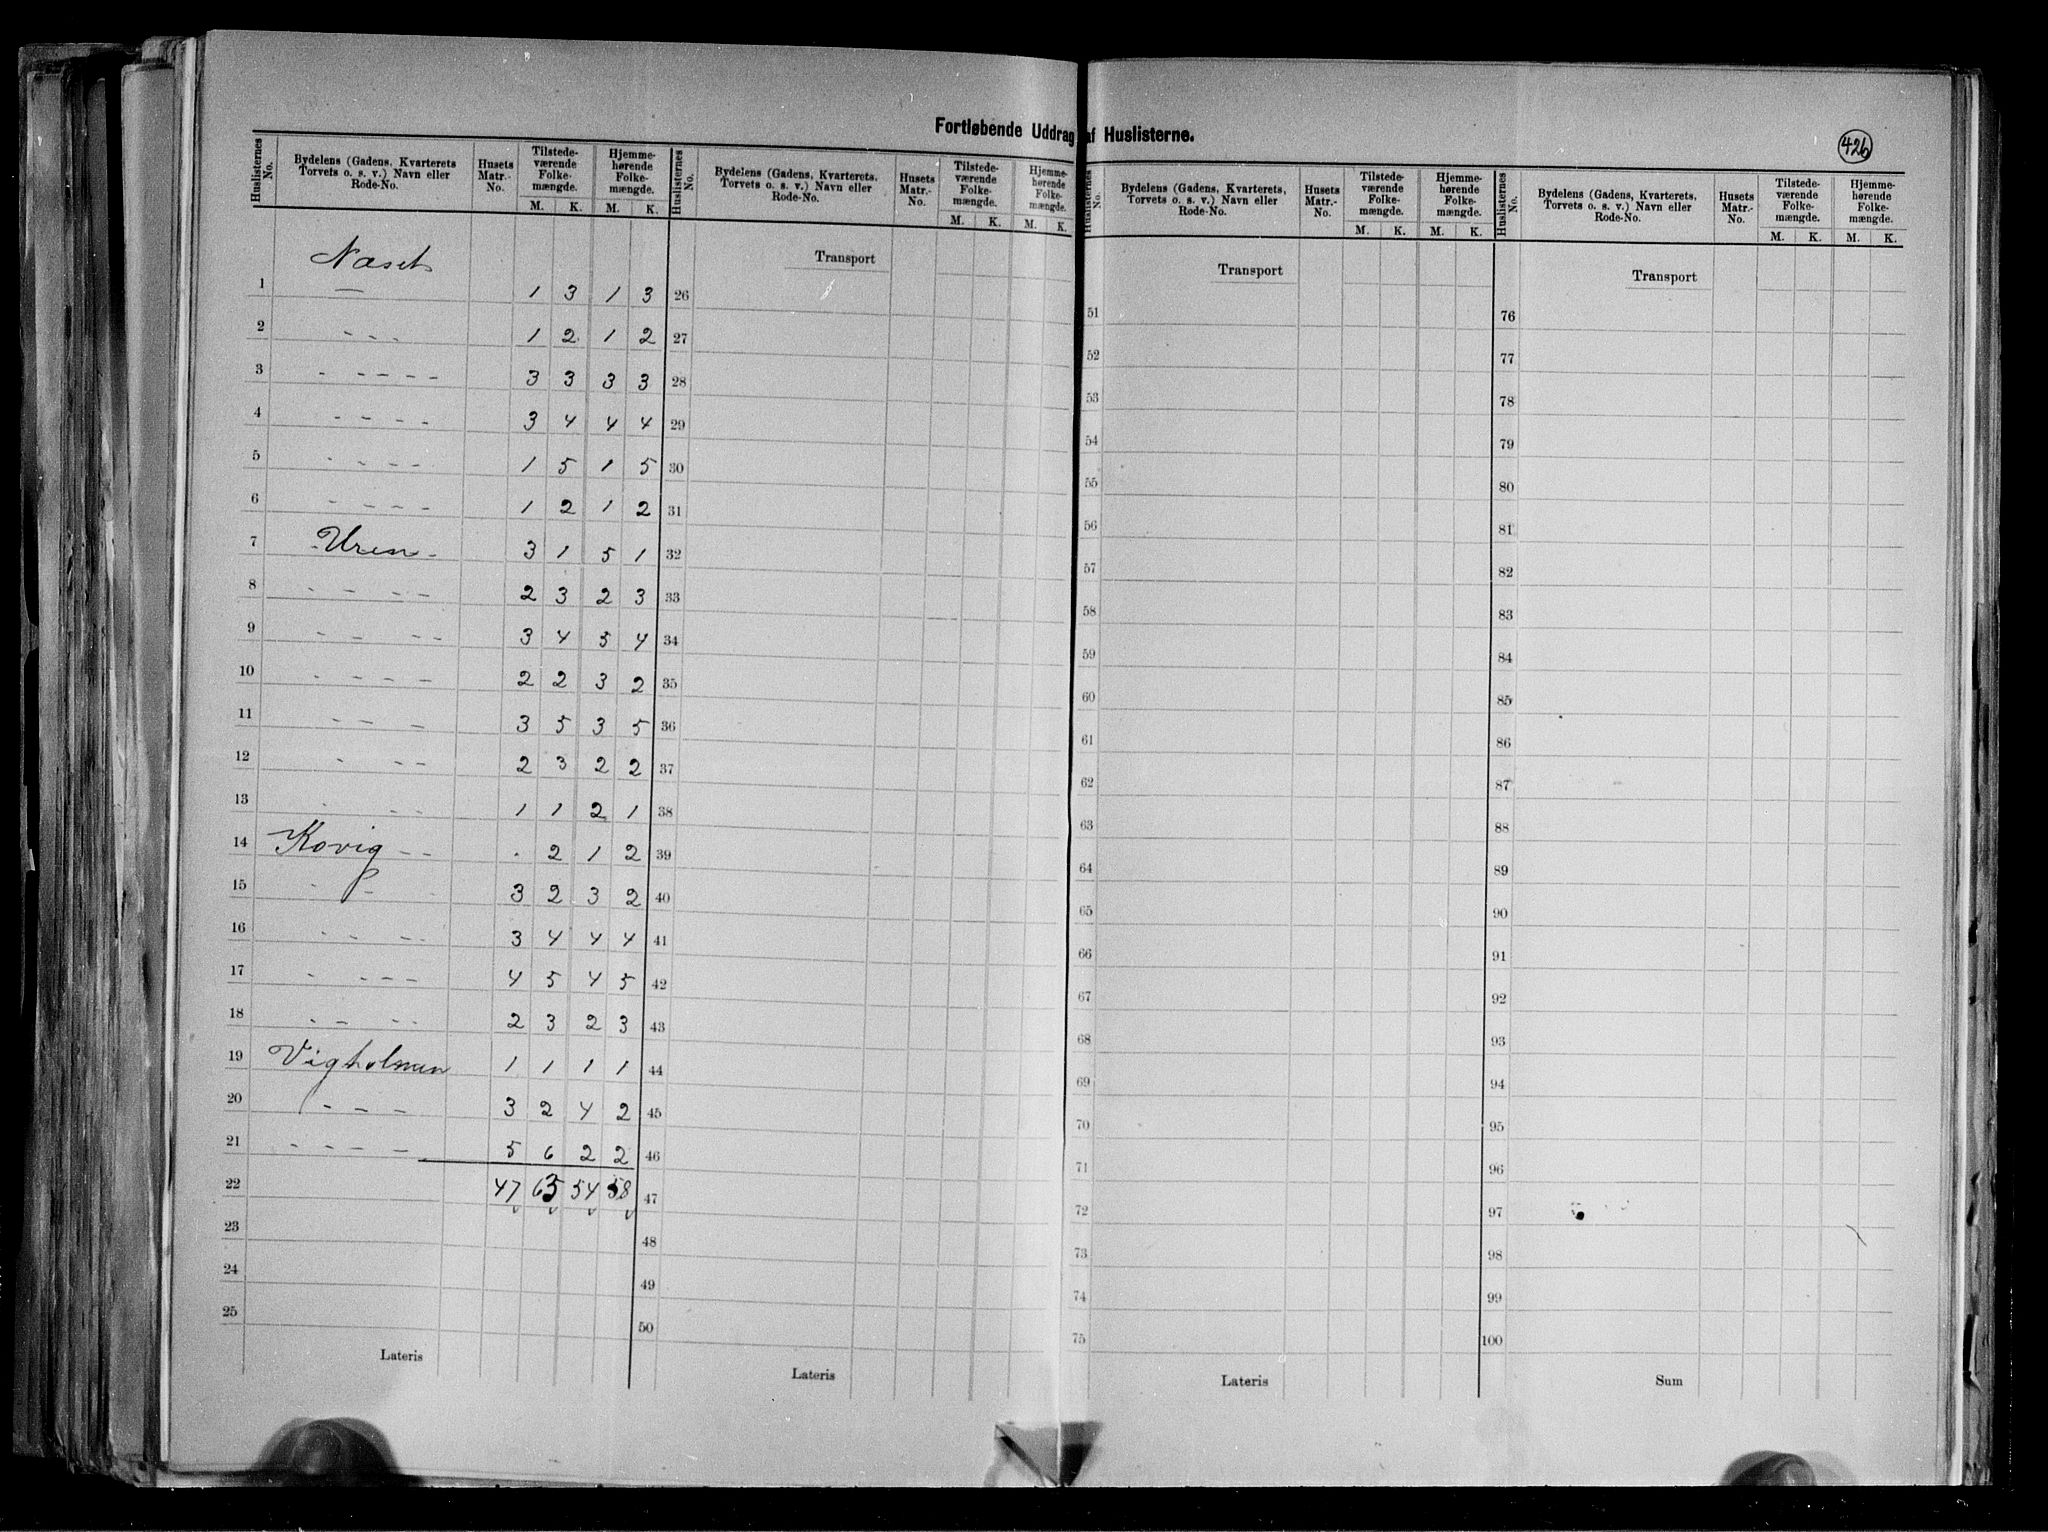 Fortløbende Uddrag af Huslisterne.
426
Huslisternes No. Bydelens (Gadens, Kvarterets Torvets o. s. v.) Navn eller Rode-No. Husets Matr.-No. Tilstedeværende Folkemængde. M. K. Hjemmehørende Folkemængde. M. K.
Næset
1 — 1 3 1 3
2 - - - 1 2 1 2
3 - - - - - 3 3 3 3
4 - - - - 3 4 4 4
5 - - - - 1 5 1 5
6 - - - - 1 2 1 2
7 - Uren - 3 1 5 1
8 - - - - 2 3 2 3
9 - - - - 3 4 5 4
10 - - - - 2 2 3 2
11 - - - 3 5 3 5
12 - - - 2 3 2 2
13 - - - 1 1 2 1
14 Kovig - - . 2 1 2
15 - - - 3 2 3 2
16 - - - - 3 4 4 4
17 - - - - 4 5 4 5
18 - - - - 2 3 2 3
19 Vigholmen 1 1 1 1
20 - - - 3 2 4 2
21 - - - - 5 6 2 2
22 47 65 54 58
23
24
25
Lateris
Huslisternes No. Bydelens (Gadens, Kvarterets, Torvets o. s. v.) Navn eller Rode-No. Husets Matr.-No. Tilstedeværende Folkemængde. M. K. Hjemmehørende Folkemængde. M. K.
Transport
26
27
28
29
30
31
32
33
34
35
36
37
38
39
40
41
42
43
44
45
46
47
48
49
50
Lateris
Huslisternes No. Bydelens (Gadens, Kvarterets, Torvets o. s. v.) Navn eller Rode-No. Husets Matr.-No. Tilstedeværende Folkemængde. M. K. Hjemmehørende Folkemængde. M. K.
Transport
51
52
53
54
55
56
57
58
59
60
61
62
63
64
65
66
67
68
69
70
71
72
73
74
75
Lateris
Huslisternes No. Bydelens (Gadens, Kvarterets, Torvets o. s. v.) Navn eller Rode-No. Husets Matr.-No. Tilstedeværende Folkemængde. M. K. Hjemmehørende Folkemængde. M. K.
Transport
76
77
78
79
80
81
82
83
84
85
86
87
88
89
90
91
92
93
94
95
96
97
98
99
100
Sum